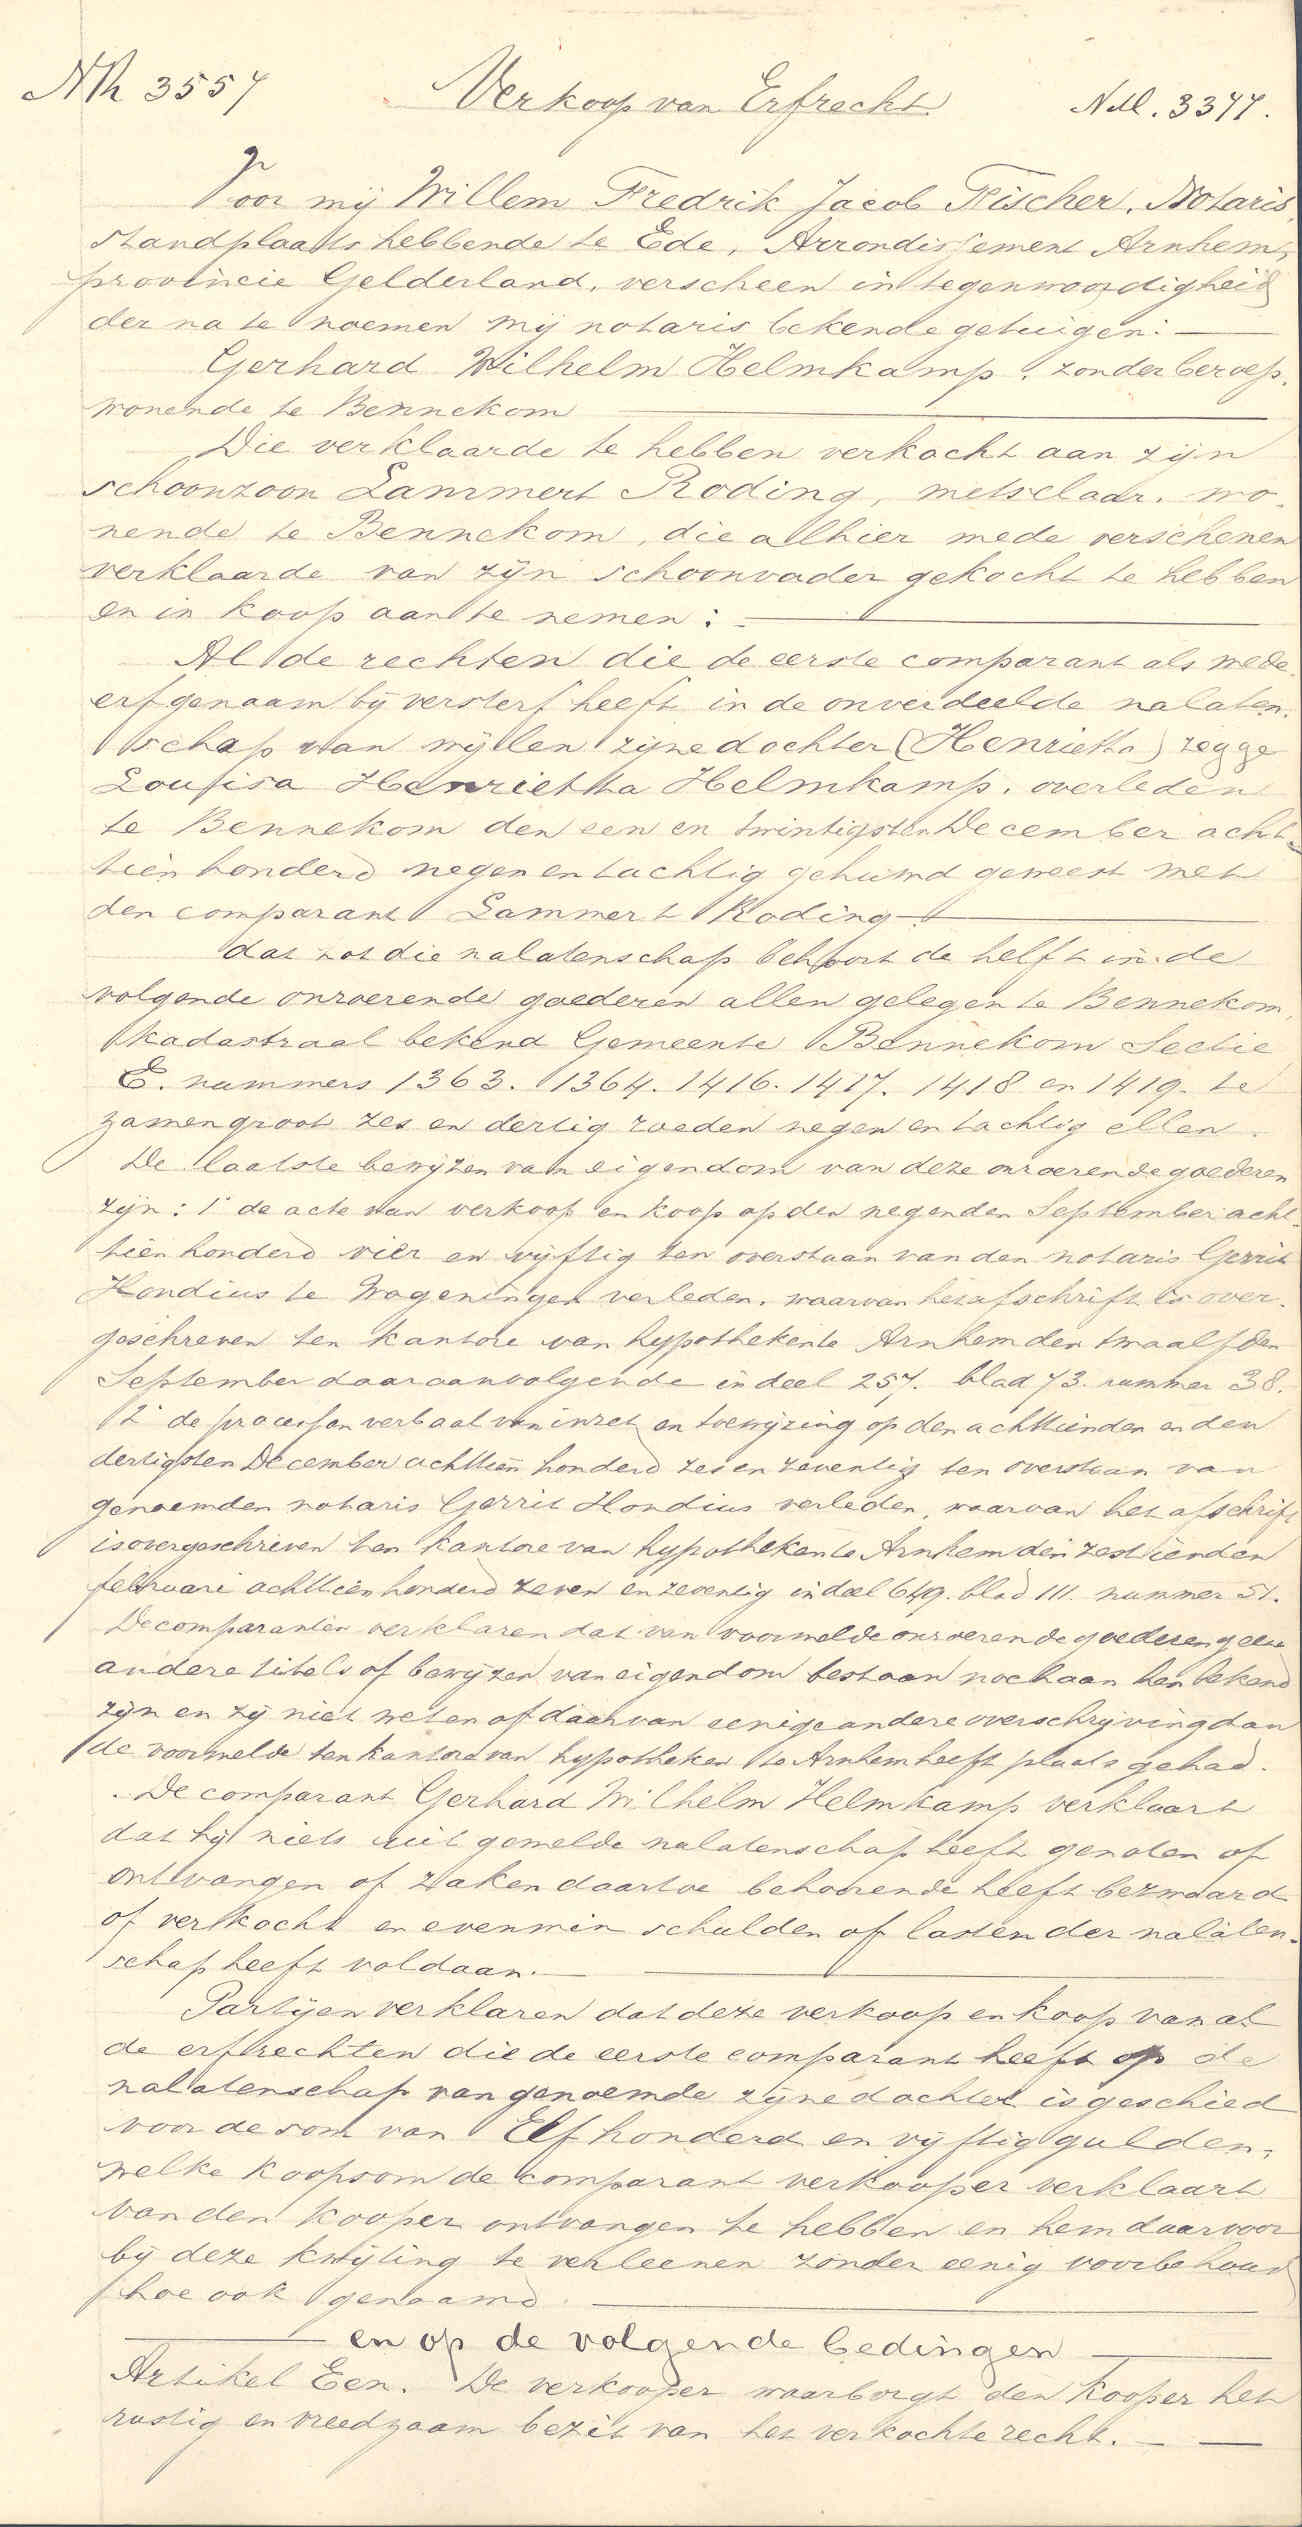 NR 3557 Verkoop van Erfrecht NM. 3377.
Voor mij Willem Fredrik Jacob Fischer, Notaris,
standplaats hebbende te Ede, Arrondissement Arnhem,
provincie Gelderland, verscheen in tegenwoordigheid
der na te noemen mij notaris bekende getuigen:
Gerhard Wilhelm Helmkamp, zonder beroep,
wonende te Bennekom
Die verklaarde te hebben verkocht aan zijn
schoonzoon Lammert Roding, metselaar, wo-
nende te Bennekom, die alhier mede verschenen
verklaarde van zijn schoonvader gekocht te hebben
en in koop aan te nemen:
Al de rechten die de eerste comparant als mede-
erfgenaam bij versterf heeft in de onverdeelde nalaten-
schap van wijlen zijne dochter (Henrietta) zegge
Louisa Henrietta Helmkamp, overleden
te Bennekom den een en twintigsten December acht-
tien honderd negen en tachtig gehuwd geweest met
den comparant Lammert Roding
dat tot die nalatenschap behoort de helft in de
volgende onroerende goederen allen gelegen te Bennekom,
kadastraal bekend Gemeente Bennekom Sectie
E. nummers 1363. 1364. 1416. 1417. 1418 en 1419. te
zamen groot zes en dertig roeden negen en tachtig ellen.
De laatste bewijzen van eigendom van deze onroerende goederen
zijn: 1° de acte van verkoop en koop op den negenden September acht-
tien honderd vier en vijftig ten overstaan van den notaris Gerrit
Hondius te Wageningen verleden, waarvan het afschrift is over-
geschreven ten kantore van hypotheken te Arnhem den twaalfden
September daaraanvolgende in deel 257. blad 73. nummer 38.
2° de processen verbaal van inzet en toewijzing op den achttienden en den
dertigsten December achttien honderd zes en zeventig ten overstaan van
genoemden notaris Gerrit Hondius verleden, waarvan het afschrift
is overgeschreven ten kantore van hypotheken te Arnhem den zestienden
februari achttien honderd zeven en zeventig in deel 649. blad 111. nummer 51.
De comparanten verklaren dat van voormelde onroerende goederen geene
andere titels of bewijzen van eigendom bestaan noch aan hen bekend
zijn en zij niet weten of daarvan eenige andere overschrijving dan
de voormelde ten kantore van hypotheken te Arnhem heeft plaats gehad.
De comparant Gerhard Wilhelm Helmkamp verklaart
dat hij niets uit gemelde nalatenschap heeft genoten of
ontvangen of zaken daartoe behoorende heeft bezwaard
of verkocht en evenmin schulden of lasten der nalaten-
schap heeft voldaan.
Partijen verklaren dat deze verkoop en koop van al
de erfrechten die de eerste comparant heeft op de
nalatenschap van genoemde zijne dochter is geschied
voor de som van Elf honderd en vijftig gulden,
welke koopsom de comparant verkooper verklaart
van den kooper ontvangen te hebben en hem daarvoor
bij deze kwijting te verleenen zonder eenig voorbehoud
hoe ook genaamd
en op de volgende bedingen
Artikel Een. De verkooper waarborgt den kooper het
rustig en vreedzaam bezit van het verkochte recht.